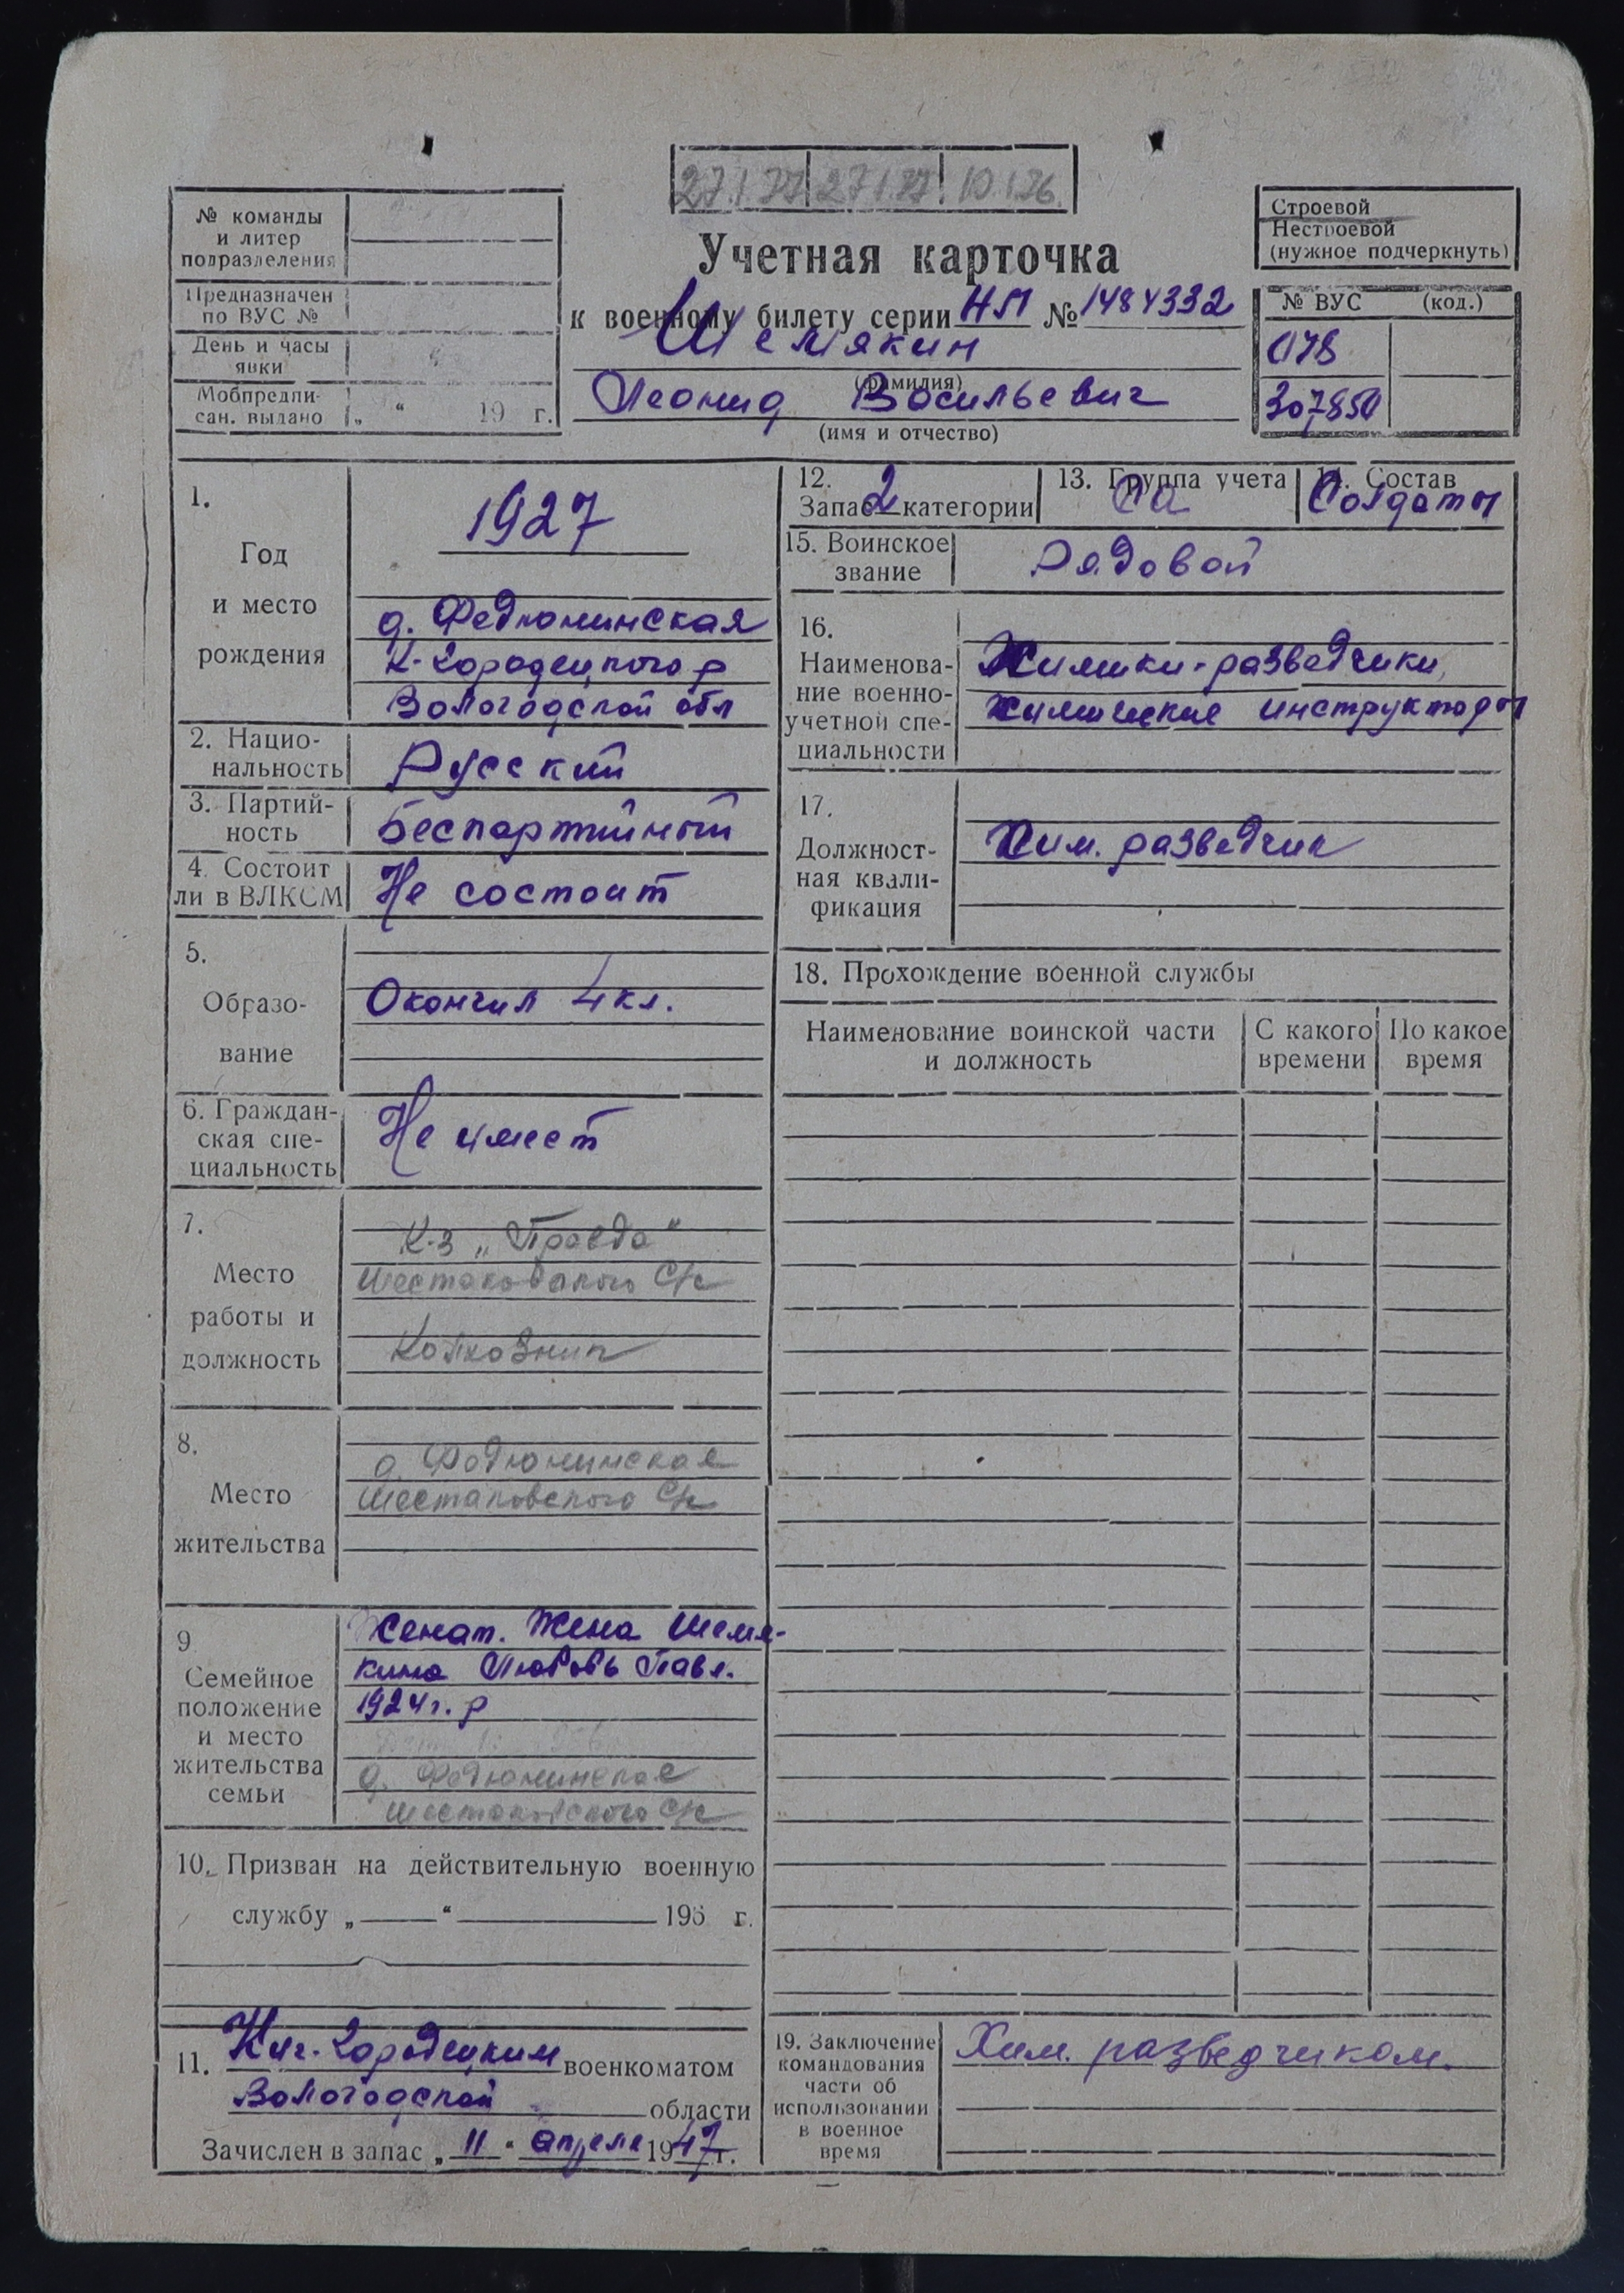 27.I.77 27.I.77 10.I.76.
№ команды
и литер
подразделения
Предназначен
по ВУС №
День и часы
явки
Мобпредпи-
сан. выдано „ “ 19 г.
Строевой
Нестроевой
(нужное подчеркнуть)
Учетная карточка
к военному билету серии НП № 1484332
Шемякин
(фамилия)
Леонид Васильевич
(имя и отчество)
№ ВУС (код.)
078
307850
1.
Год
и место
рождения
1927
д. Федюнинская
К-Городецкого р
Вологодской обл
2. Нацио-
нальность
Русский
3. Партий-
ность
Беспартийный
4. Состоит
ли в ВЛКСМ
Не состоит
5.
Образо-
вание
Окончил 4 кл.
6. Граждан-
ская спе-
циальность
Не имеет
7.
Место
работы и
должность
К-з „Правда“
Шестаковского С/с
Колхозник
8.
Место
жительства
д. Федюнинская
Шестаковского С/с
9
Семейное
положение
и место
жительства
семьи
Женат. Жена Шемя-
кина Любовь Павл.
1924 г. р
д. Федюнинская
Шестаковского С/с
10. Призван на действительную военную
службу „ “ 195 г.
11. Кич-Городецким военкоматом
Вологодской области
Зачислен в запас „11“ апреля 1947 г.
12.
Запас 2 категории
13. Группа учета
СА
14. Состав
Солдаты
15. Воинское
звание
Рядовой
16.
Наименова-
ние военно-
учетной спе-
циальности
Химики-разведчики,
химические инструкторы
17.
Должност-
ная квали-
фикация
Хим. разведчик
18. Прохождение военной службы
Наименование воинской части
и должность
С какого
времени
По какое
время
19. Заключение
командования
части об
использовании
в военное
время
Хим. разведчиком.